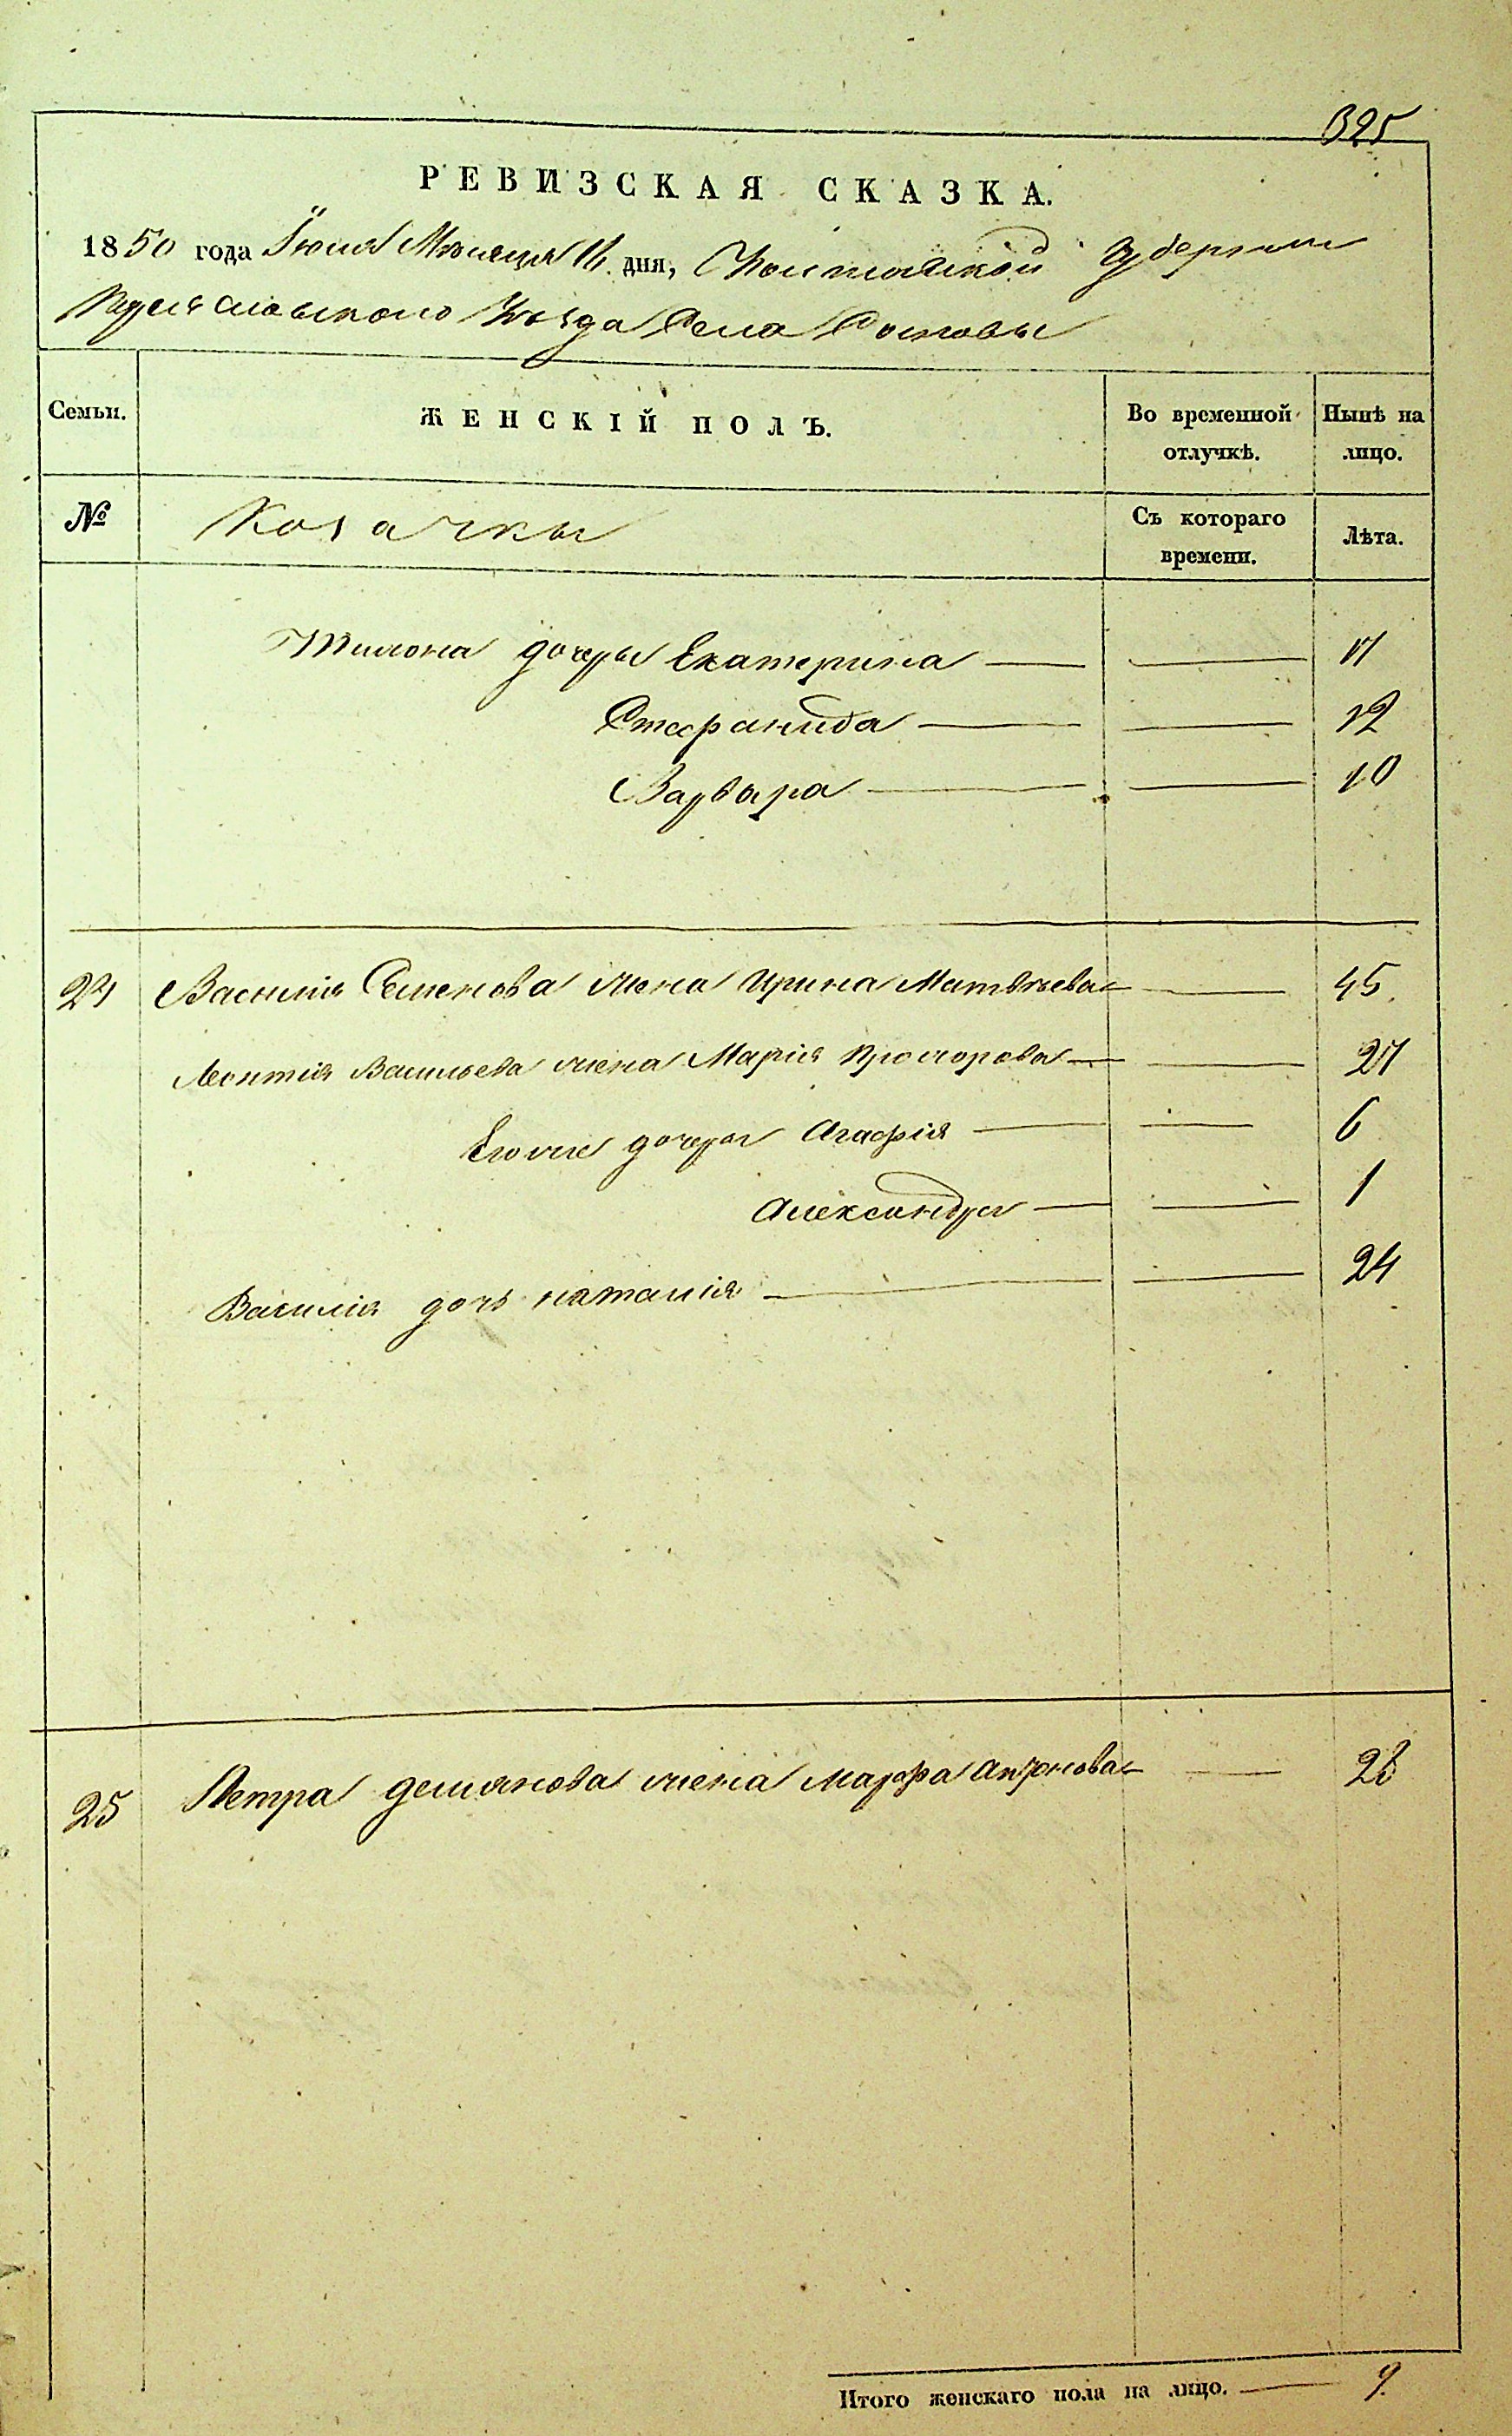 325
РЕВИЗСКАЯ СКАЗКА.
1850 года Іюля Мѣсяца 11 дня, Полтавской Губерніи
Переяславского Уѣзда Села Сосновы
Семьи. ЖЕНСКІЙ ПОЛЪ. Во временной отлучкѣ. Нынѣ на лицо.
№ Козачки Съ котораго времени. Лѣта.
дочеры Екатерина 17
Стефанида 12
Варвара 10
24 Василія Семенова жена Ирина Матвѣева 45
Леонтія Васильева жена Марія Прохорова 27
Его же дочеры Агафія 6
Александра 1
Василія дочь наталія 24
25 Петра демянова жена марфа Антонова 26
Итого женскаго пола на лицо. 9.